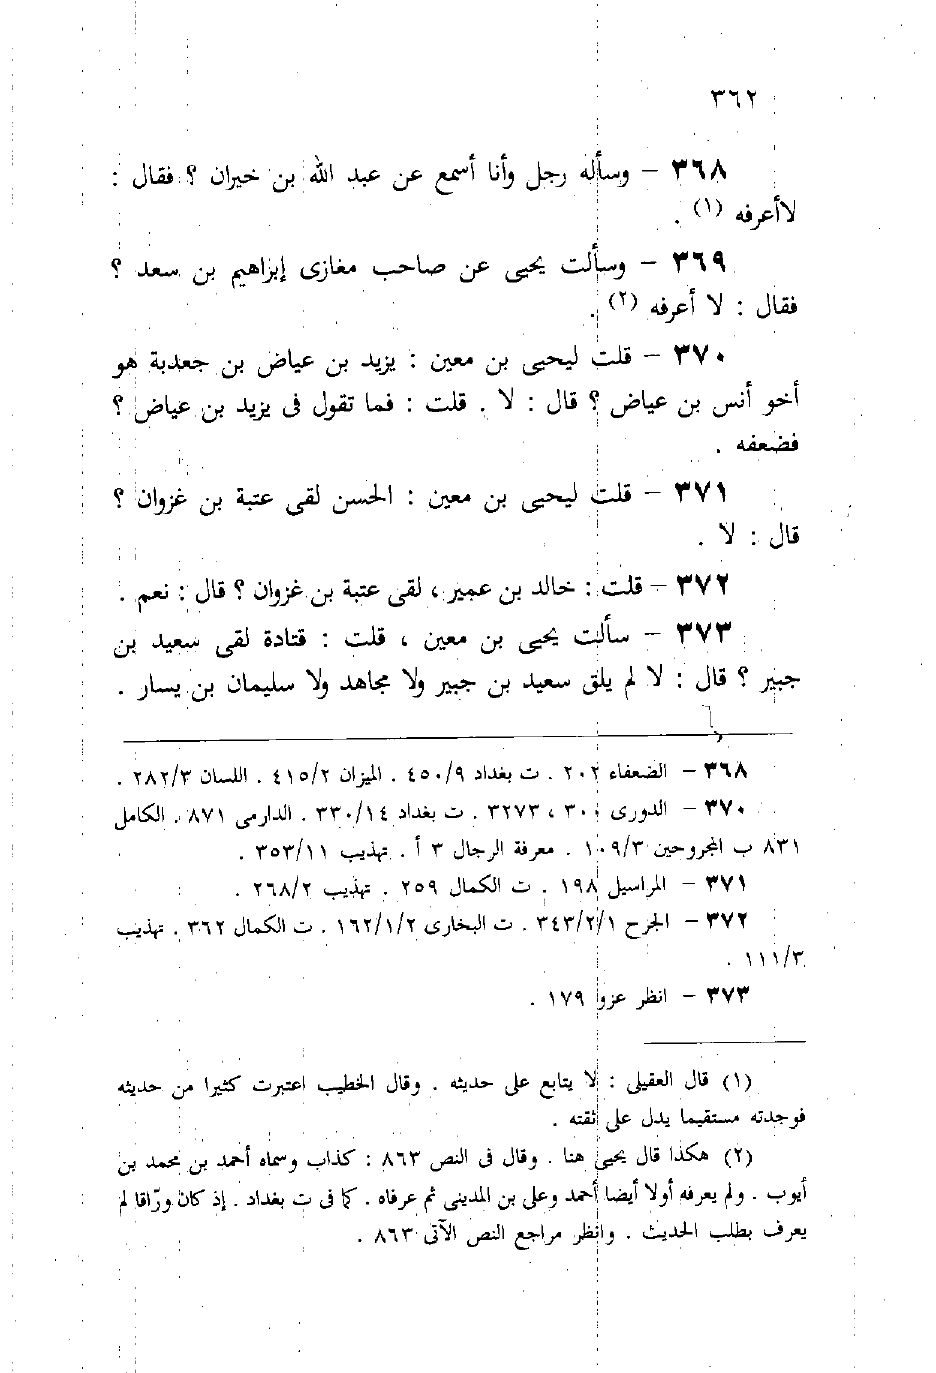 ٣٦٢
٣٦٨ – وسأله رجل وأنا أسمع عن عبد الله بن خيران ؟ فقال :
لاأعرفه (١) .
٣٦٩ – وسألت يحيى عن صاحب مغازى إبراهيم بن سعد ؟
فقال : لا أعرفه (٢) .
٣٧٠ – قلت ليحيى بن معين : يزيد بن عياض بن جعدبة هو
أخو أنس بن عياض ؟ قال : لا . قلت : فما تقول فى يزيد بن عياض ؟
فضعفه .
٣٧١ – قلت ليحيى بن معين : الحسن لقى عتبة بن غزوان ؟
قال : لا .
٣٧٢ – قلت : خالد بن عمير ، لقى عتبة بن غزوان ؟ قال : نعم .
٣٧٣ – سألت يحيى بن معين ، قلت : قتادة لقى سعيد بن
جبير ؟ قال : لا لم يلق سعيد بن جبير ولا مجاهد ولا سليمان بن يسار .
٣٦٨ – الضعفاء ٢٠٢ . ت بغداد ٤٥٠/٩ . الميزان ٤١٥/٢ . اللسان ٢٨٢/٣ .
٣٧٠ – الدورى ٣٠ ، ٣٢٧٣ . ت بغداد ٣٣٠/١٤ . الدارمى ٨٧١ . الكامل
٨٣١ ب المجروحين ١٠٩/٣ . معرفة الرجال ٣ أ . تهذيب ٣٥٣/١١ .
٣٧١ – المراسيل ١٩٨ . ت الكمال ٢٥٩ . تهذيب ٢٦٨/٢ .
٣٧٢ – الجرح ٣٤٣/٢/١ . ت البخارى ١٦٢/١/٢ . ت الكمال ٣٦٢ . تهذيب
١١١/٣ .
٣٧٣ – انظر عزو ١٧٩ .
(١) قال العقيلى : لا يتابع على حديثه . وقال الخطيب اعتبرت كثيرا من حديثه
فوجدته مستقيما يدل على ثقته .
(٢) هكذا قال يحيى هنا . وقال فى النص ٨٦٣ : كذاب وسماه أحمد بن محمد بن
أيوب . ولم يعرفه أولا أيضا أحمد وعلى بن المدينى ثم عرفاه . كما فى ت بغداد . إذ كان ورّاقا لم
يعرف بطلب الحديث . وانظر مراجع النص الآتى ٨٦٣ .